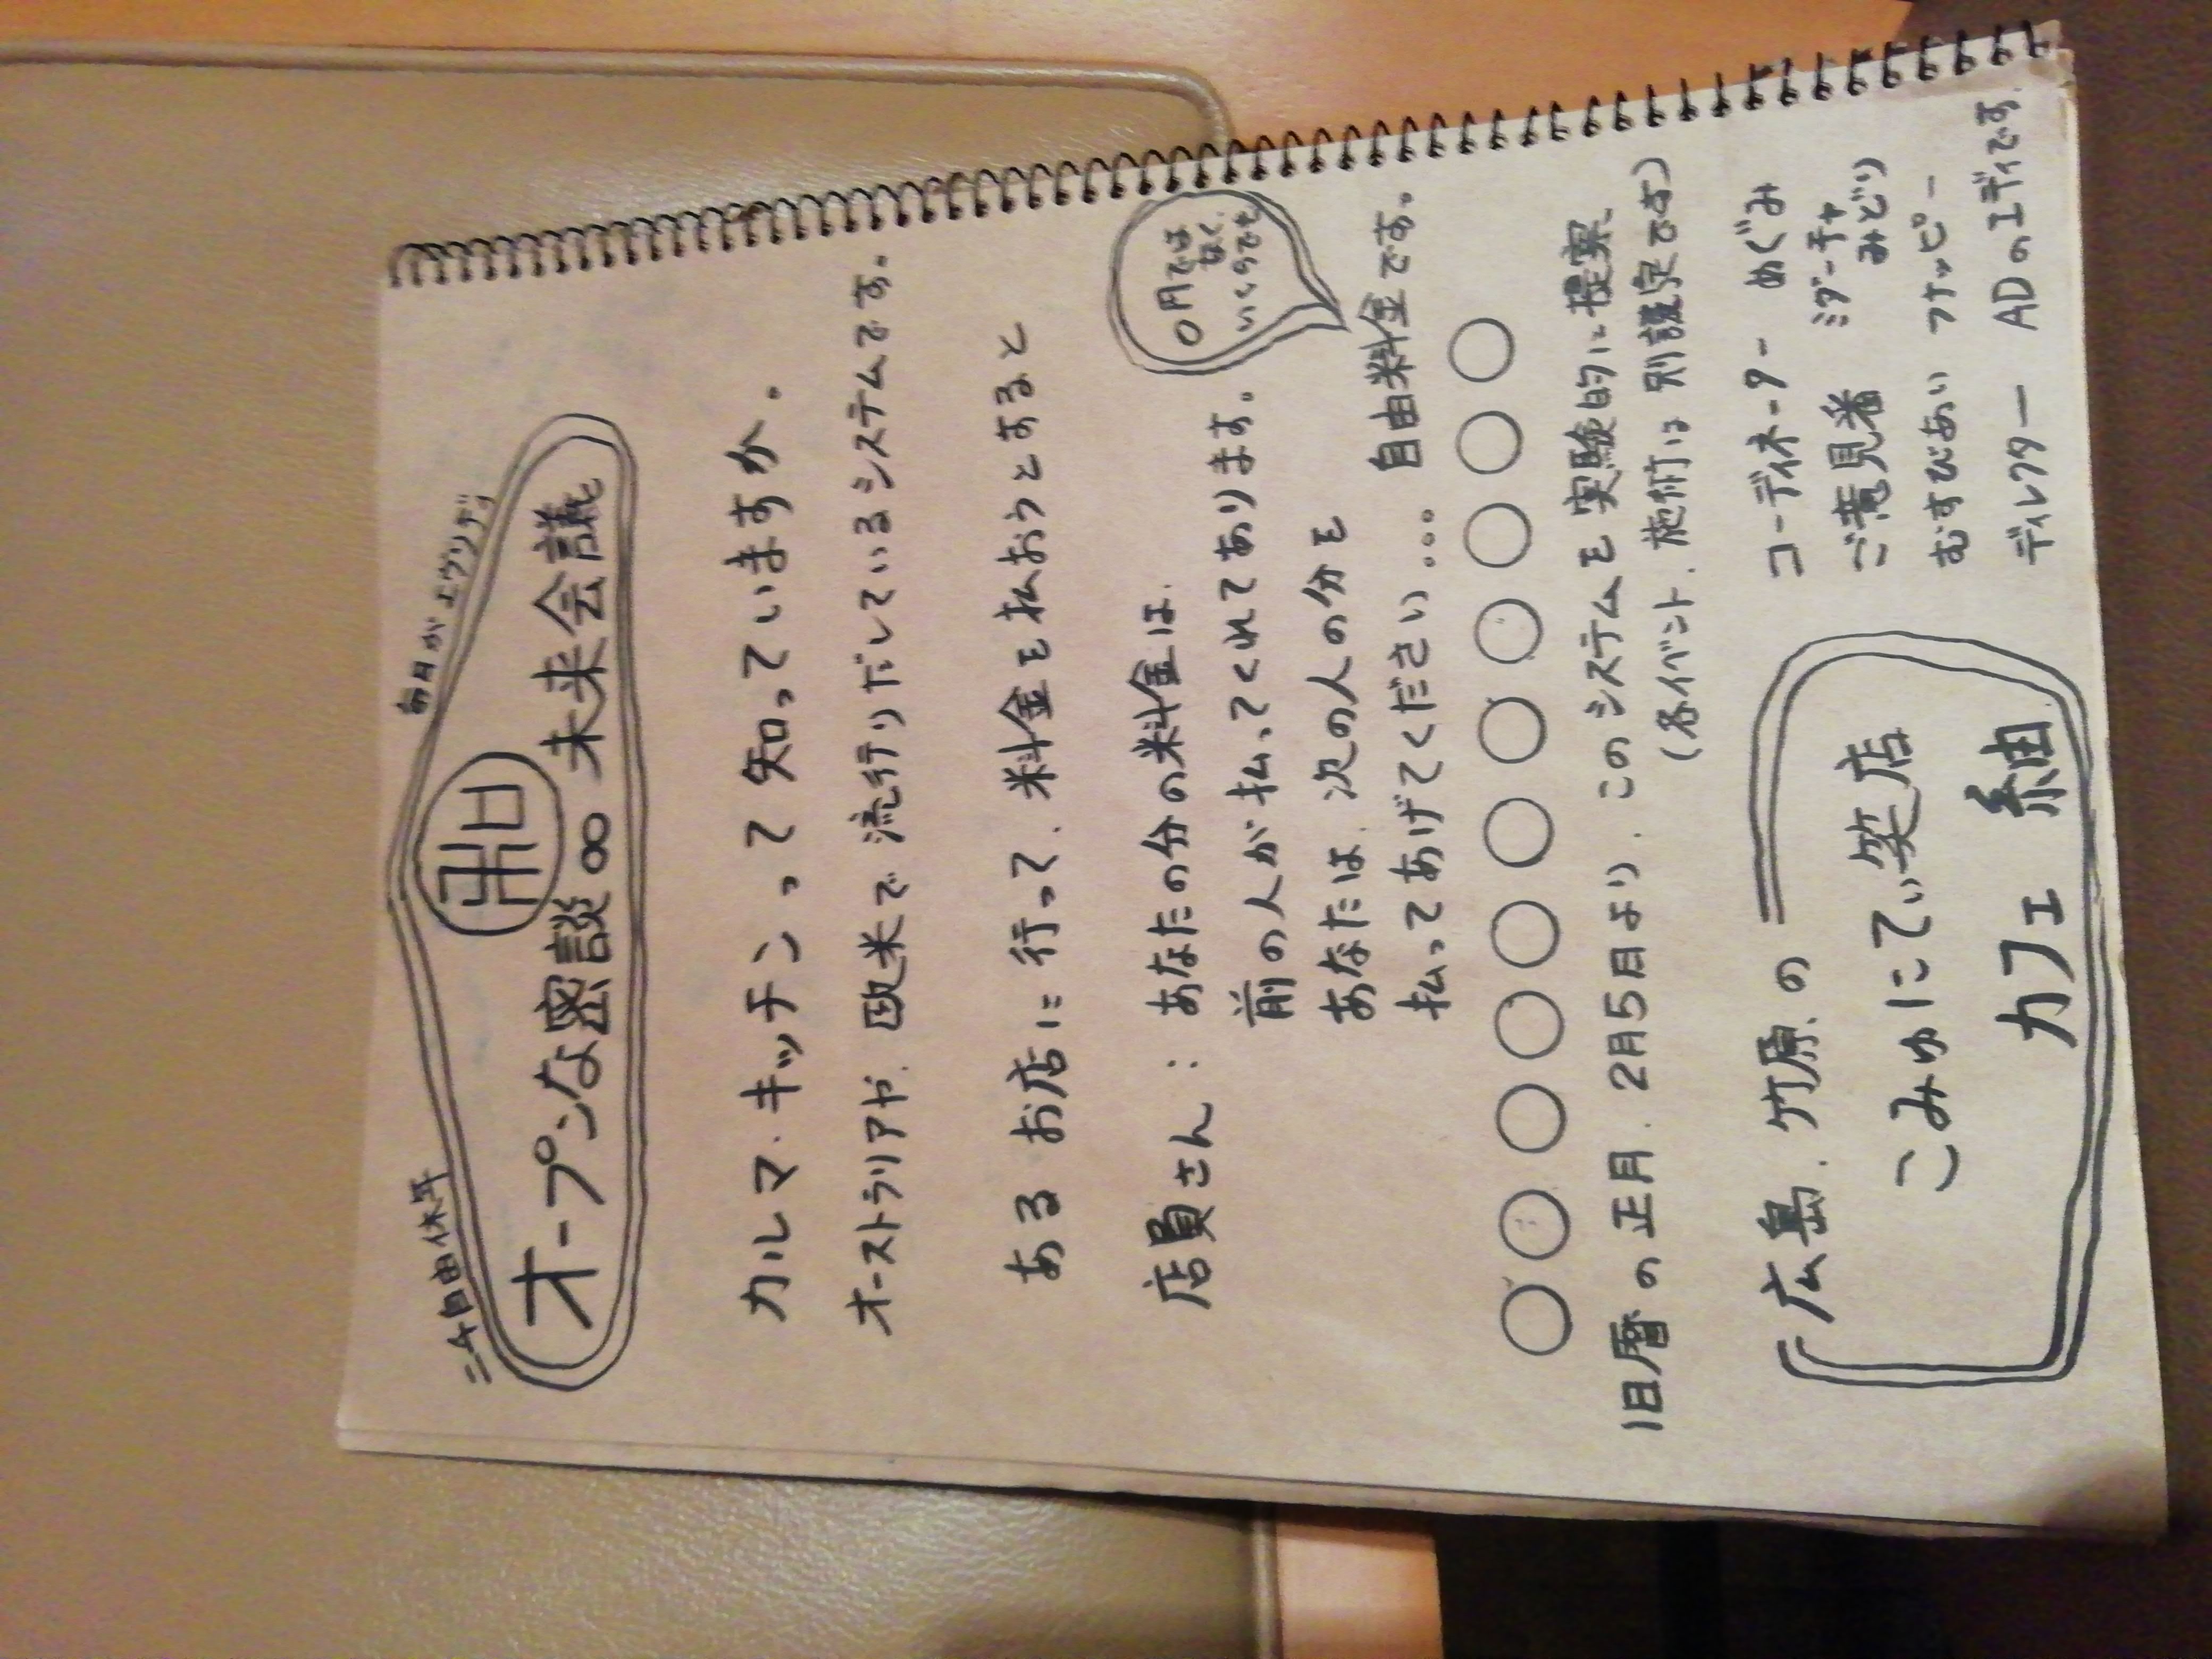 ニチ自由休平
毎日がエヴリデイ
オープンな密談∞未来会議
カルマ・キッチンって知っていますか。
オーストラリアや、欧米で流行りだしているシステムです。
ある お店に行って、料金を払おうとすると
店員さん：あなたの分の料金は、
前の人が払ってくれてあります。
あなたは、次の人の分を
払ってあげてください...
0円では
なく、
いくらでも
自由料金です。
○○○○○○○○○○○
旧暦の正月、2月5日より、このシステムを実験的に提案、
(各イベント、施術は別設定です)
広島、竹原、の
こみゅにてぃ笑店
カフェ 紬
コーディネーター めぐみ
ご意見番 ミダーチャ
みどり
むすびあい フナッピー
ディレクター ADのエディです。